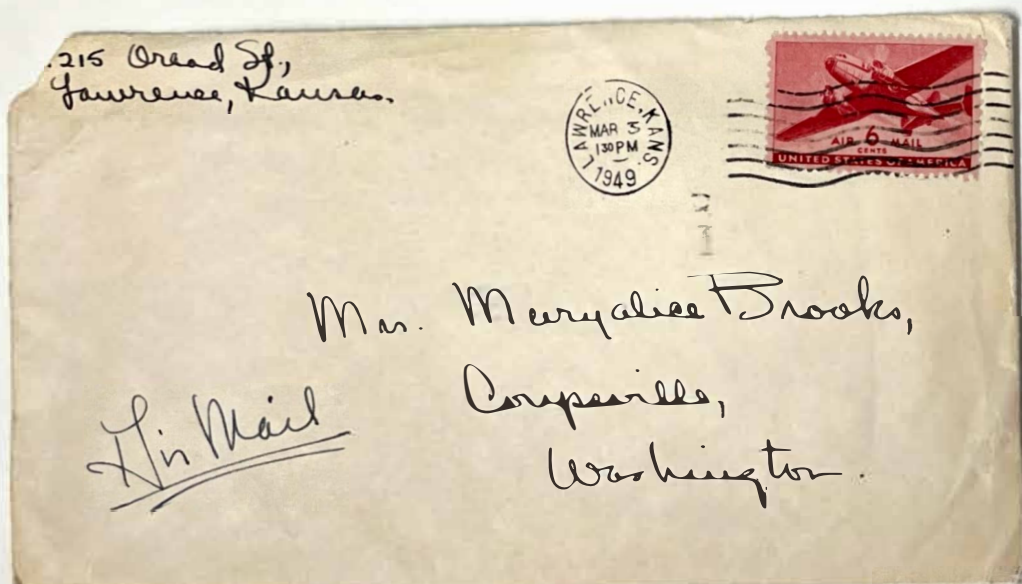 215 Oread St.,
Lawrence, Kansas.
LAWRENCE, KANS.
MAR 3
1 30 PM
1949
AIR 6 MAIL
CENTS
UNITED STATES OF AMERICA
Mrs. Maryalice Brooks,
Coupeville,
Washington.
Air Mail